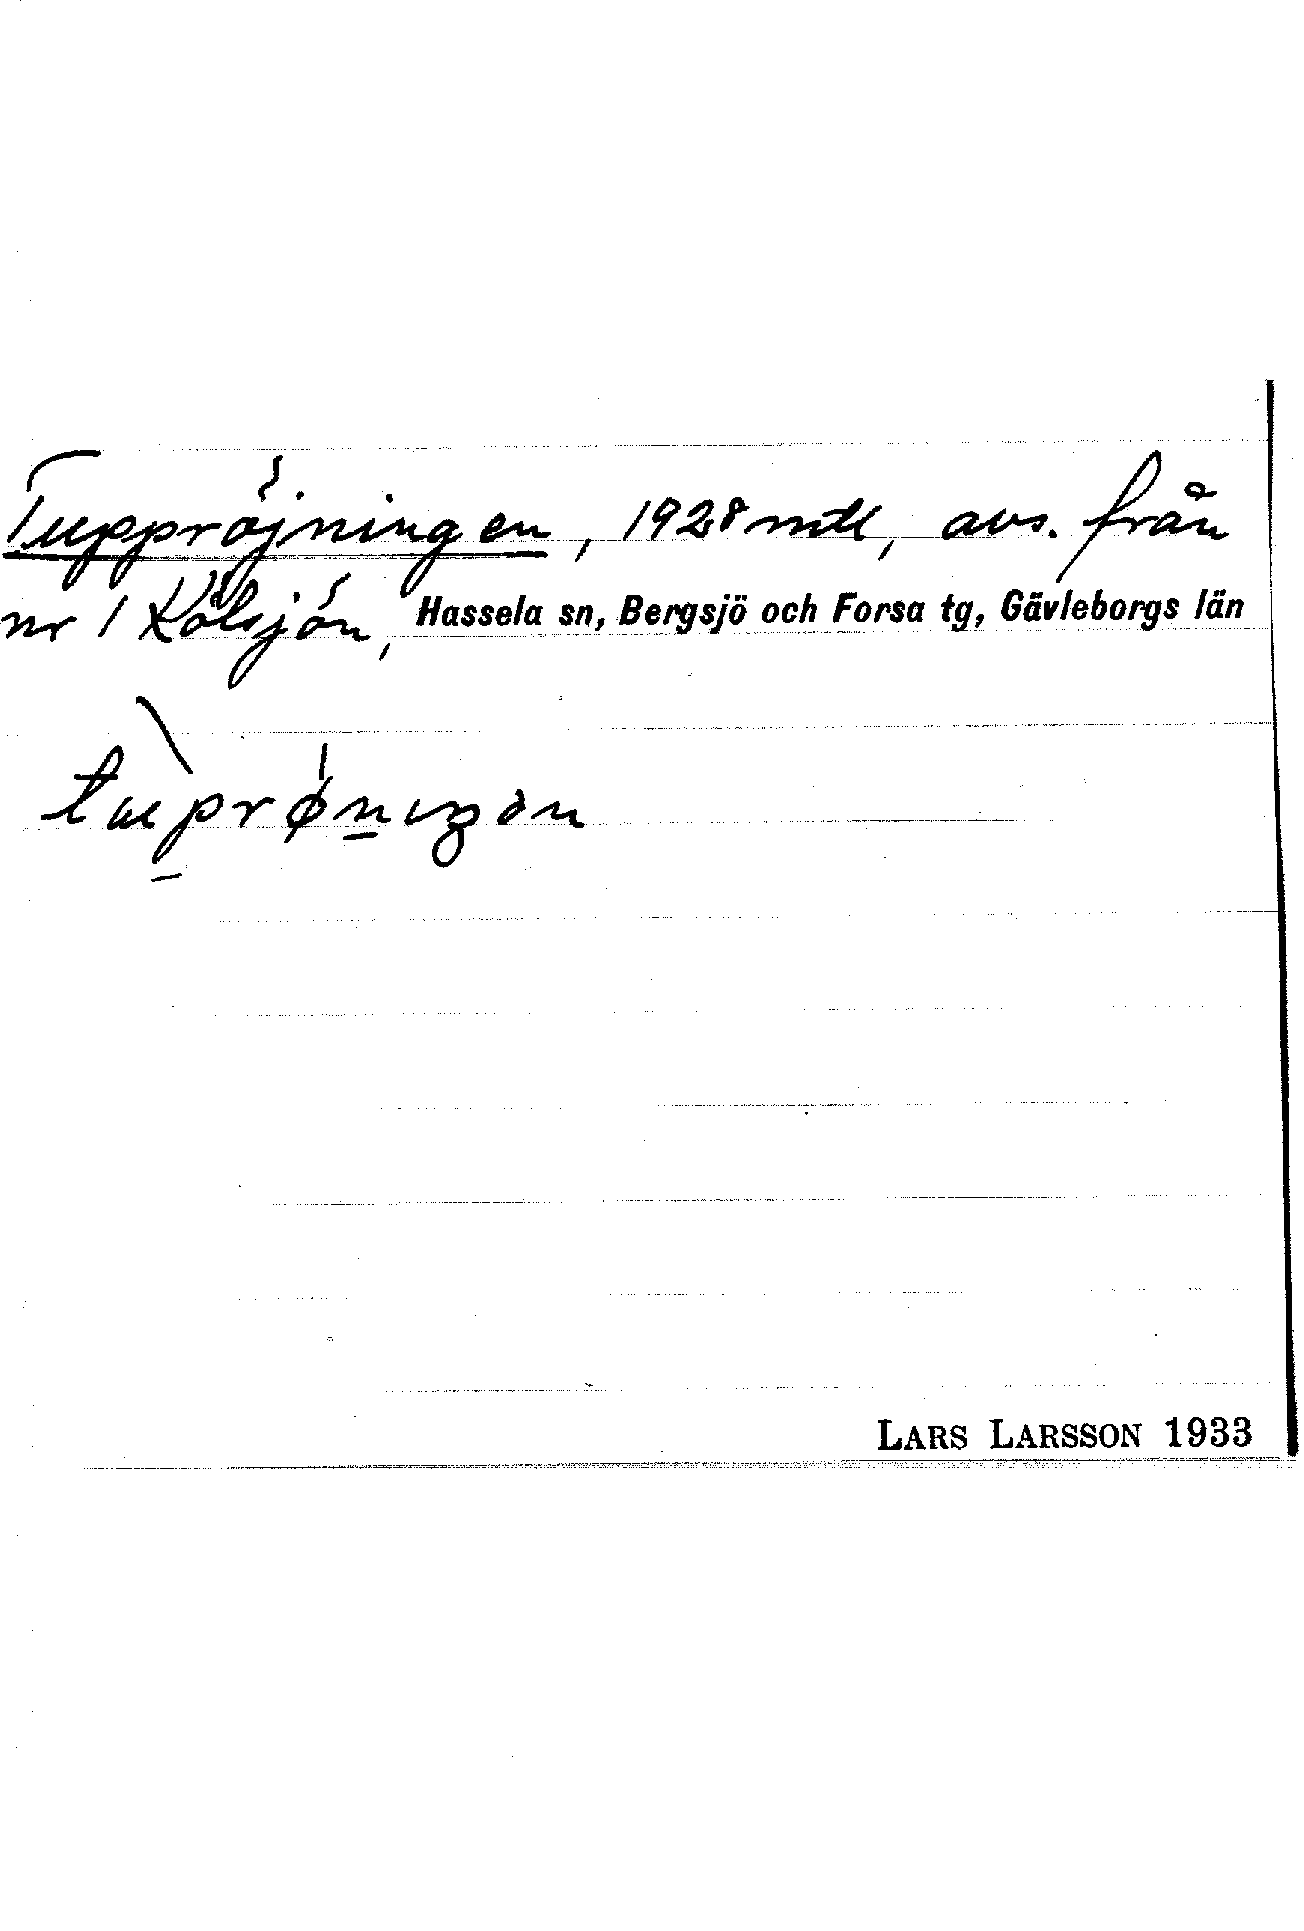 Tuppröjningen, 1928 mtl, avs. från
nr 1 Kölsjön, Hassela sn, Bergsjö och Forsa tg, Gävleborgs län
LARS LARSSON 1933